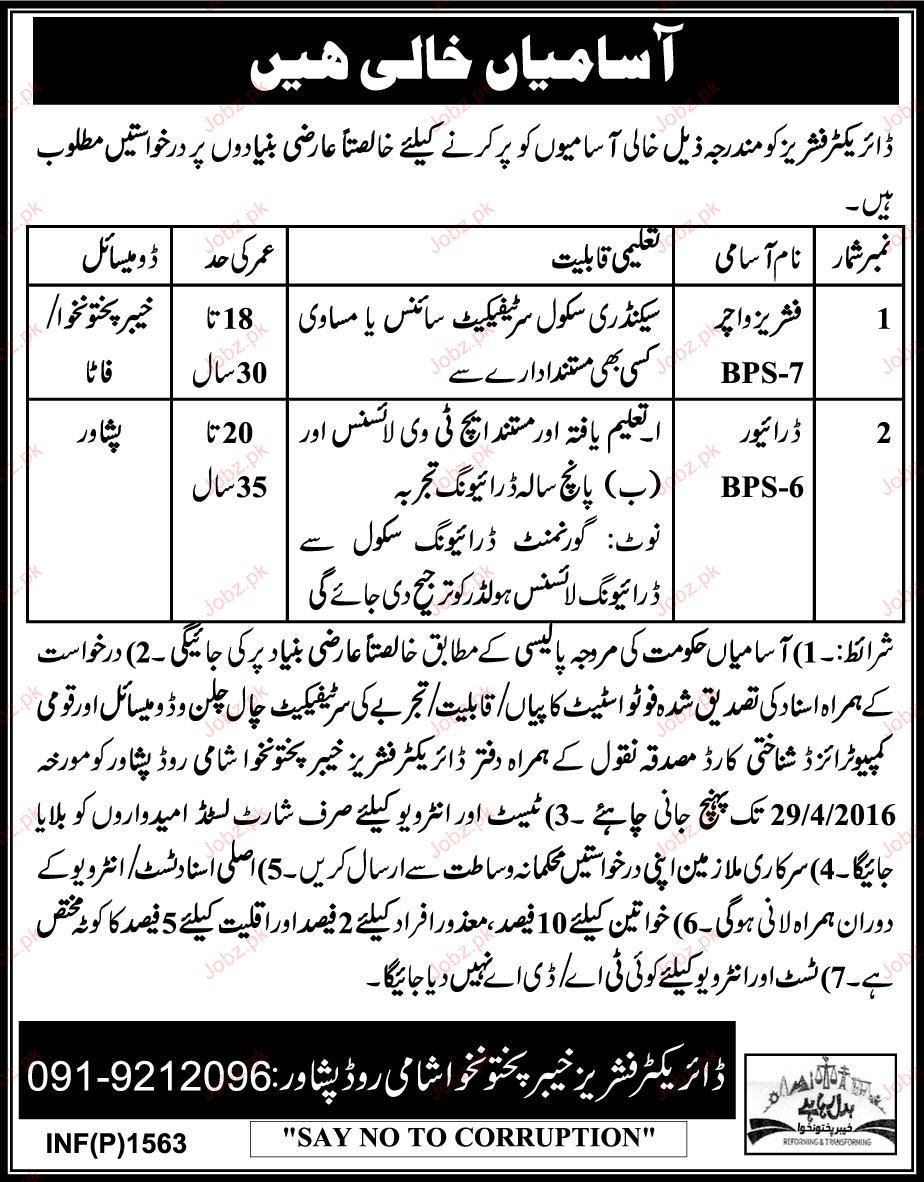 آسامیاں خالی ھیں
ڈائریکٹر فشریز کو مندرجہ ذیل خالی آسامیوں کو پر کرنے کیلئے خالصتاً عارضی بنیادوں پر درخواستیں مطلوب
ہیں۔
نمبر شمار نام آسامی تعلیمی قابلیت عمر کی حد ڈومیسائل
1 فشریز واچر سیکنڈری سکول سرٹیفکیٹ سائنس یا مساوی 18 تا خیبر پختونخوا/
BPS-7 کسی بھی مستند ادارے سے 30 سال فاٹا
2 ڈرائیور ا۔ تعلیم یافتہ اور مستند ایچ ٹی وی لائسنس اور 20 تا پشاور
BPS-6 (ب) پانچ سالہ ڈرائیونگ تجربہ 35 سال
نوٹ: گورنمنٹ ڈرائیونگ سکول سے
ڈرائیونگ لائسنس ہولڈر کو ترجیح دی جائے گی
شرائط:۔ 1) آسامیاں حکومت کی مروجہ پالیسی کے مطابق خالصتاً عارضی بنیاد پر کی جائیگی۔ 2) درخواست
کے ہمراہ اسناد کی تصدیق شدہ فوٹو اسٹیٹ کاپیاں/ قابلیت/ تجربے کی سرٹیفکیٹ چال چلن و ڈومیسائل اور قومی
کمپیوٹرائزڈ شناختی کارڈ مصدقہ نقول کے ہمراہ دفتر ڈائریکٹر فشریز خیبر پختونخوا شامی روڈ پشاور کو مورخہ
29/4/2016 تک پہنچ جانی چاہئے۔ 3) ٹیسٹ اور انٹرویو کیلئے صرف شارٹ لسٹڈ امیدواروں کو بلایا
جائیگا۔ 4) سرکاری ملازمین اپنی درخواستیں محکمانہ وساطت سے ارسال کریں۔ 5) اصلی اسناد ٹسٹ/ انٹرویو کے
دوران ہمراہ لانی ہوگی۔ 6) خواتین کیلئے 10 فیصد، معذور افراد کیلئے 2 فیصد اور اقلیت کیلئے 5 فیصد کا کوٹہ مختص
ہے۔ 7) ٹسٹ اور انٹرویو کیلئے کوئی ٹی اے/ ڈی اے نہیں دیا جائیگا۔
ڈائریکٹر فشریز خیبر پختونخوا شامی روڈ پشاور: 091-9212096
بدل رہا ہے
خیبر پختونخوا
REFORMING & TRANSFORMING
INF(P)1563
"SAY NO TO CORRUPTION"
Jobz.pk